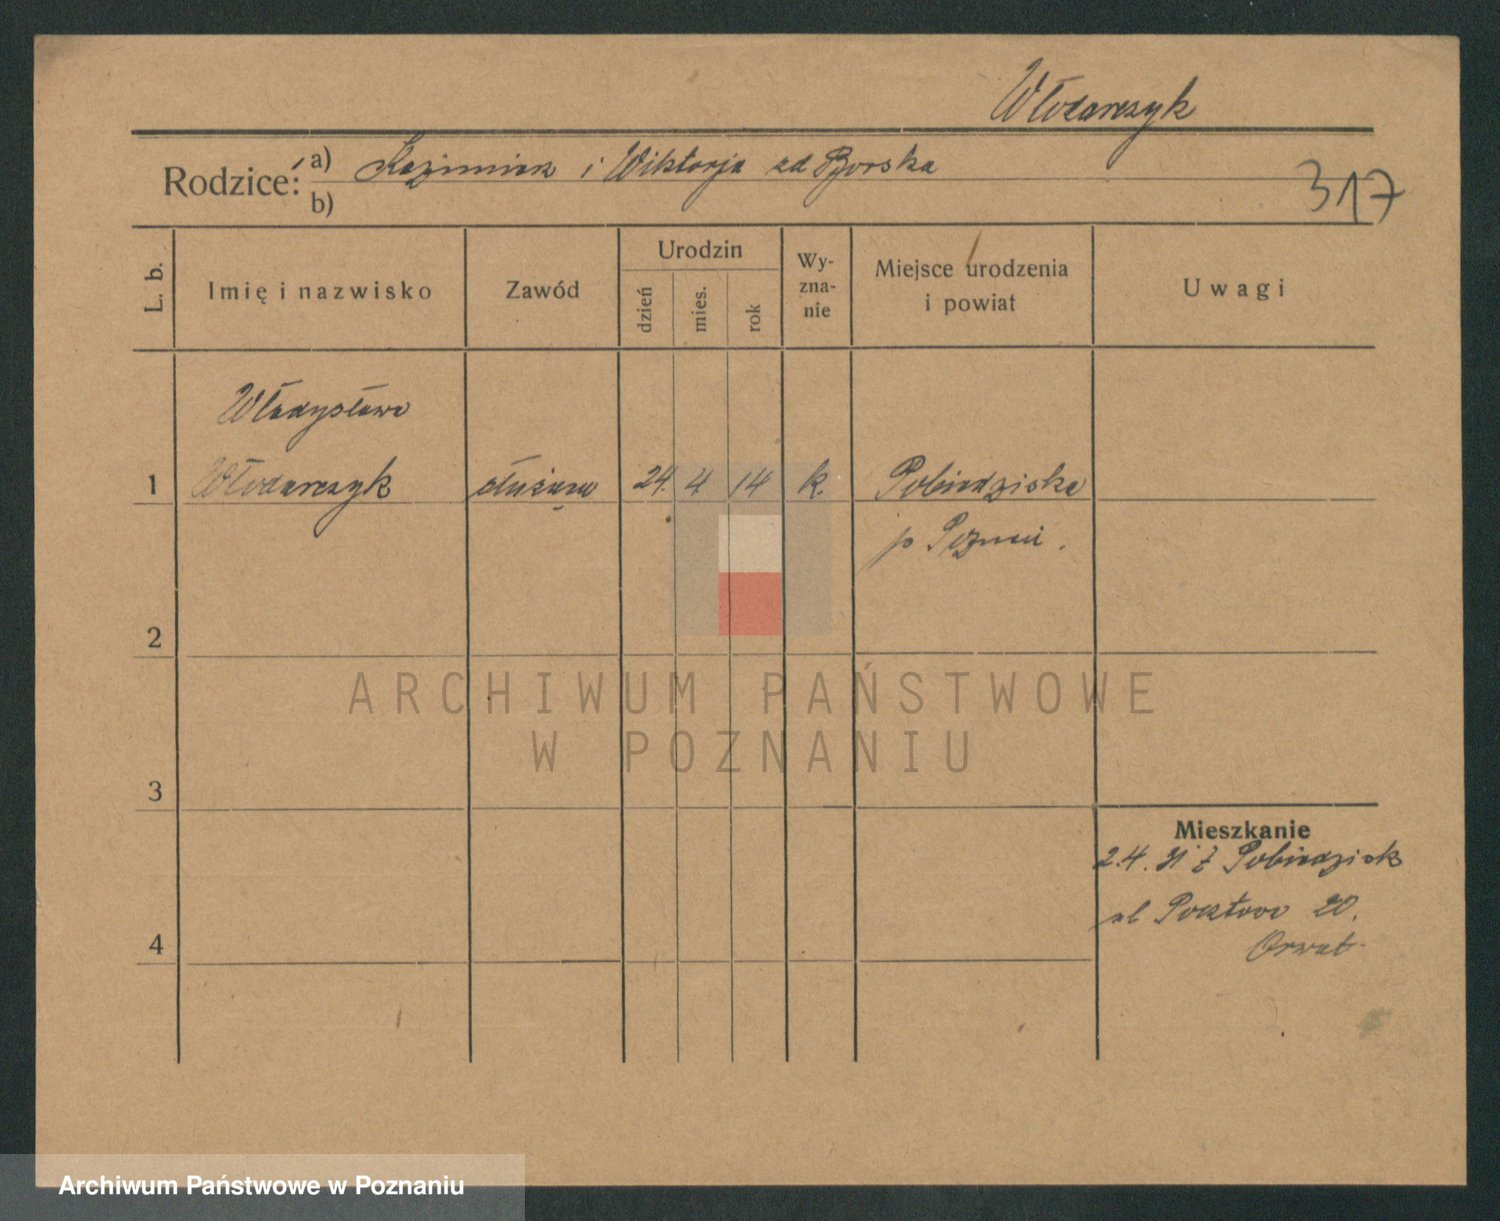 Włodarczyk
Rodzice: a) Kazimierz i Wiktorja zd Byorska
b)
317
L. b.
Imię i nazwisko
Zawód
Urodzin
dzień
mies.
rok
Wy-
zna-
nie
Miejsce urodzenia
i powiat
Uwagi
Władysława
1 Włodarczyk służąca 24. 4 14 k. Pobiedziska
p Poznań.
2
ARCHIWUM PAŃSTWOWE
W POZNANIU
3
Mieszkanie
2.4.31 z Pobiedzisk
ul Pocztowa 20.
4
Archiwum Państwowe w Poznaniu